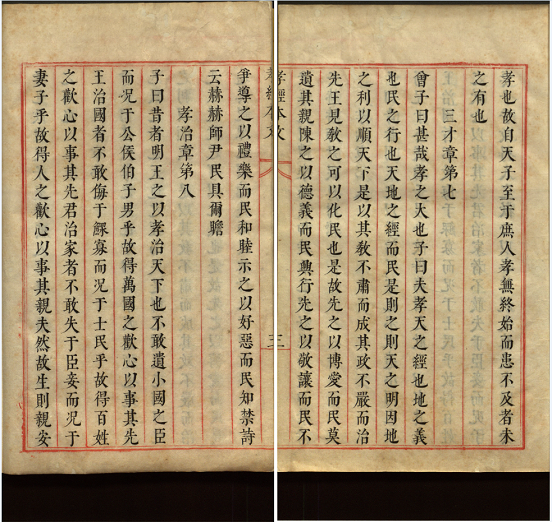 孝也故自天子至于庶人孝無終始而患不及者未
之有也
三才章第七
曾子曰甚哉孝之大也子曰夫孝天之經也地之義
也民之行也天地之經而民是則之則天之明因地
之利以順天下是以其敎不肅而成其政不嚴而治
先王見敎之可以化民也是故先之以博愛而民莫
遺其親陳之以德義而民興行先之以敬讓而民不
孝經本文
三
爭導之以禮樂而民和睦示之以好惡而民知禁詩
云赫赫師尹民具爾瞻
孝治章第八
子曰昔者明王之以孝治天下也不敢遺小國之臣
而况于公侯伯子男乎故得萬國之歡心以事其先
王治國者不敢侮于鰥寡而况于士民乎故得百姓
之歡心以事其先君治家者不敢失于臣妾而况于
妻子乎故得人之歡心以事其親夫然故生則親安